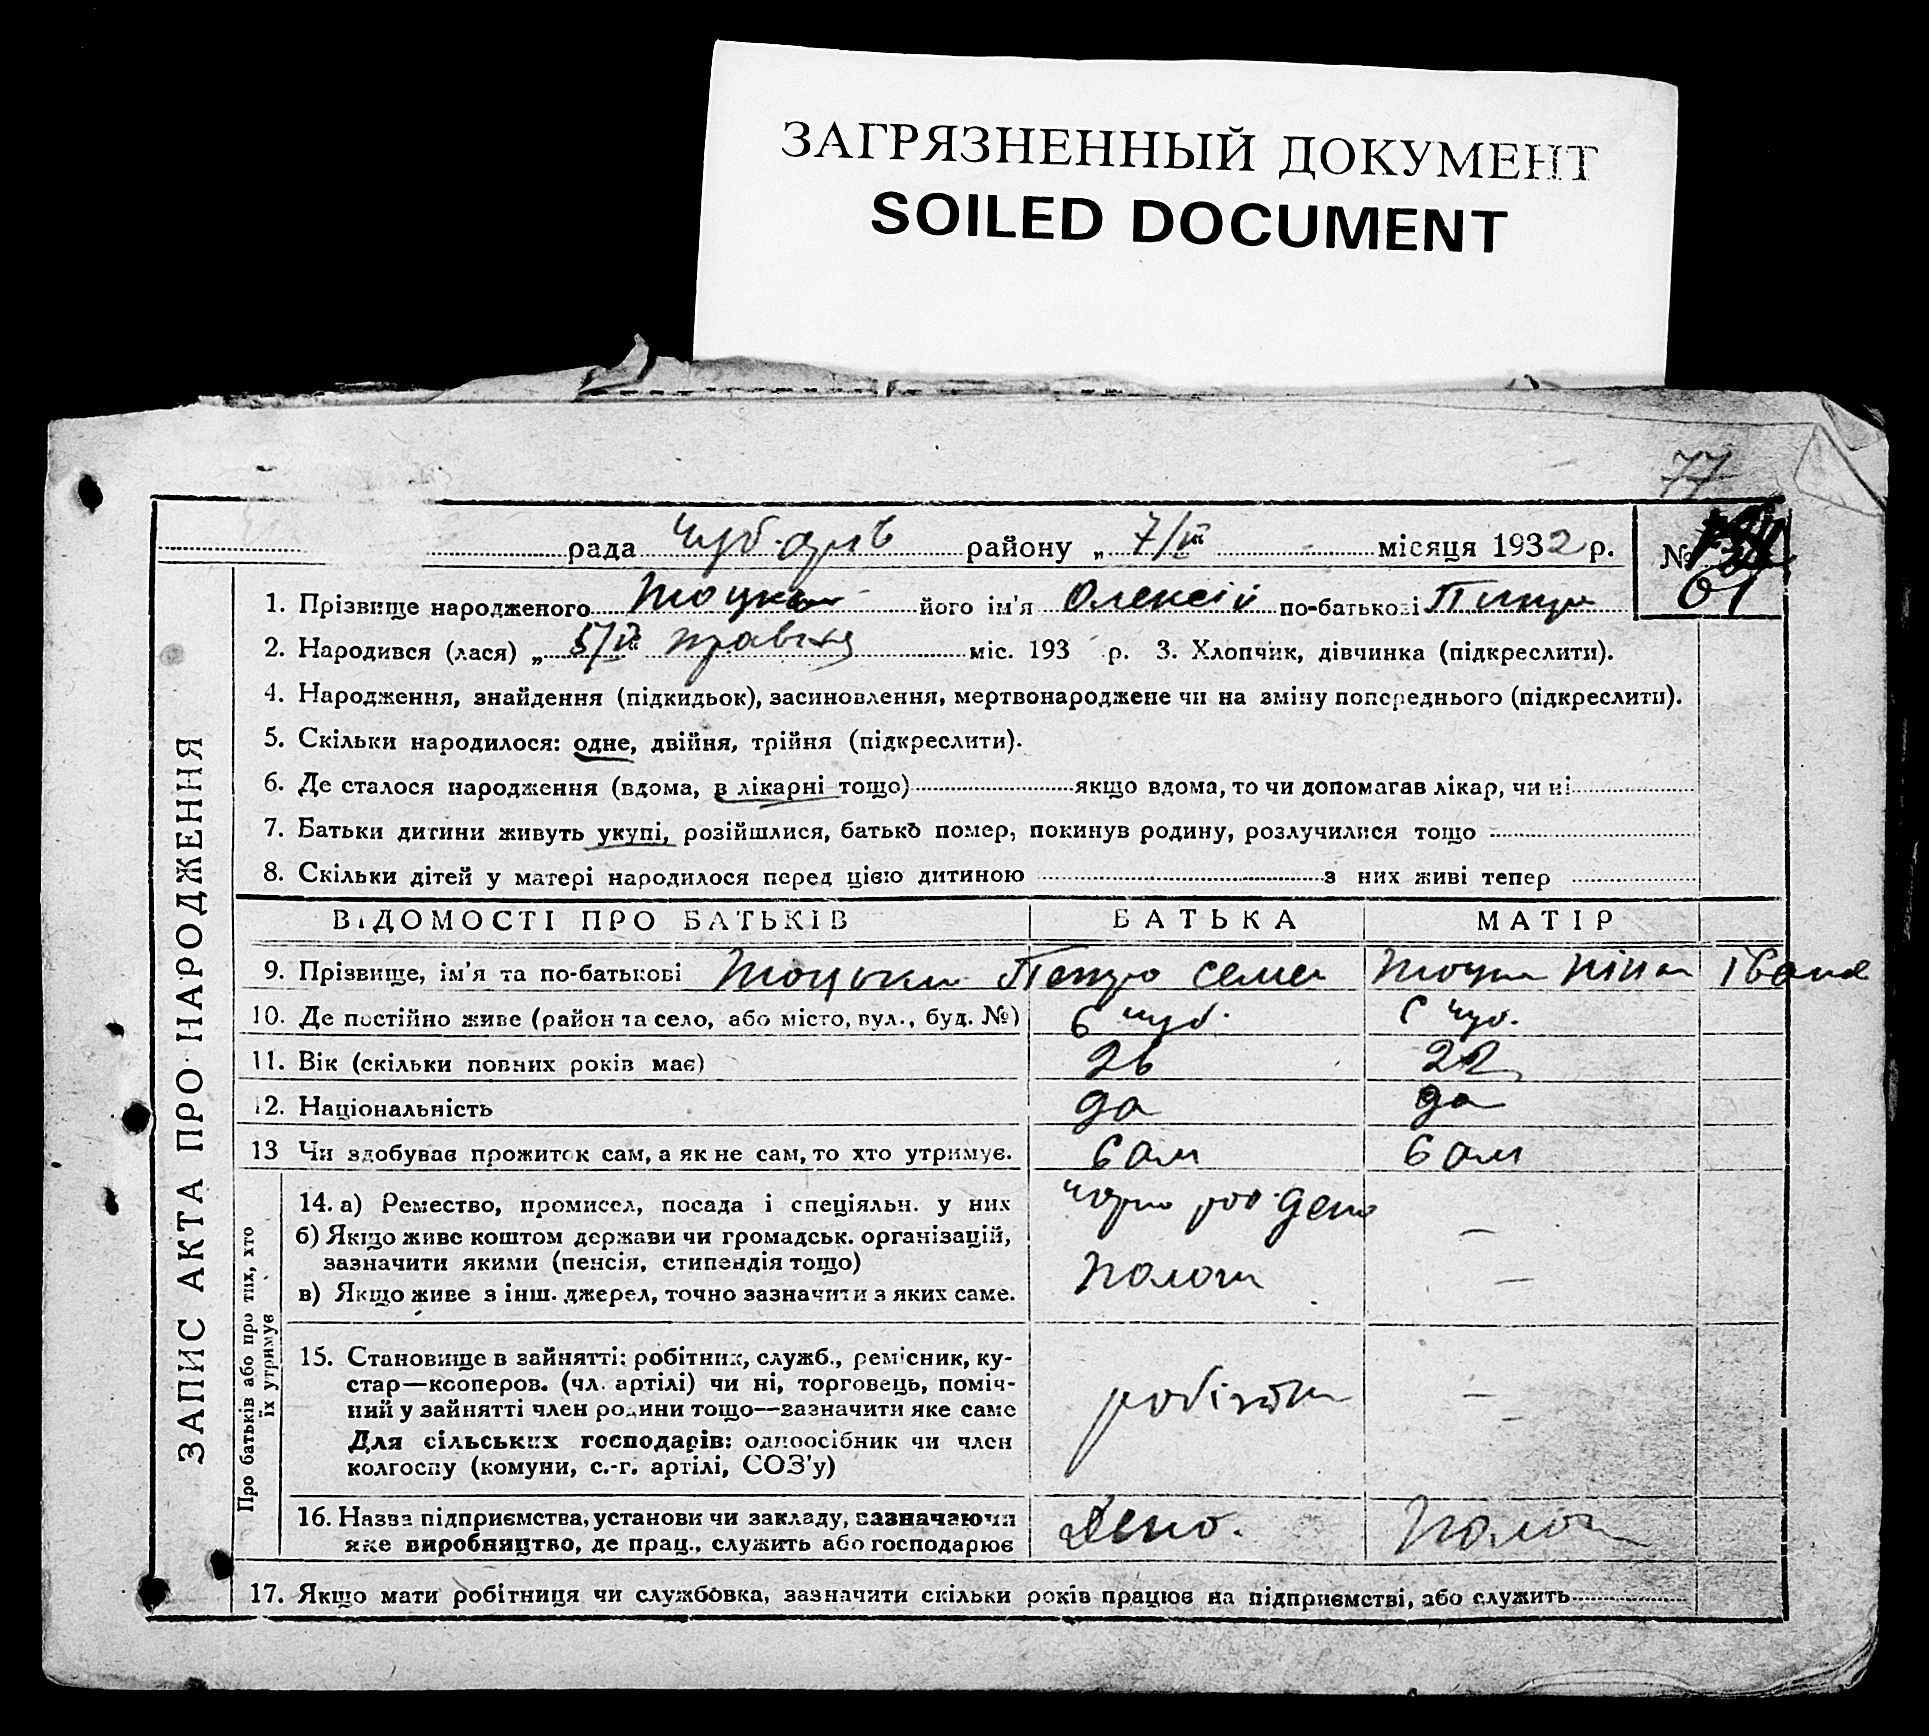 ЗАГРЯЗНЕННЫЙ ДОКУМЕНТ
SOILED DOCUMENT
77
рада Чуб. району „ 7/ІІІ місяця 1932 р. №
61
1. Прізвище народженого його ім'я Олексій по-батькові Петро
2. Народився (лася) „ міс. 193 р. 3. Хлопчик, дівчинка (підкреслити).
4. Народження, знайдення (підкидьок), засиновлення, мертвонароджене чи на зміну попереднього (підкреслити).
5. Скільки народилося: одне, двійня, трійня (підкреслити).
6. Де сталося народження (вдома, в лікарні тощо) якщо вдома, то чи допомагав лікар, чи ні
7. Батьки дитини живуть укупі, розійшлися, батько помер, покинув родину, розлучилися тощо
8. Скільки дітей у матері народилося перед цією дитиною з них живі тепер
ВІДОМОСТІ ПРО БАТЬКІВ БАТЬКА МАТІР
9. Прізвище, ім'я та по-батькові Тоцьки Петро Семен Ніна Іване
10. Де постійно живе (район та село, або місто, вул., буд. №) с Чуб. с Чуб.
11. Вік (скільки повних років має) 26 22
12. Національність
13 Чи здобував прожиток сам, а як не сам, то хто утримує. сам сам
14. а) Ремество, промисел, посада і спеціяльн. у них чорно роб. депо –
б) Якщо живе коштом держави чи громадськ. організацій,
зазначити якими (пенсія, стипендія тощо)
в) Якщо живе з інш. джерел, точно зазначити з яких саме. Пологи –
15. Становище в зайнятті: робітник, служб., ремісник, ку-
стар—кооперов. (чл. артілі) чи ні, торговець, поміч-
ний у зайнятті член родини тощо—зазначити яке саме робітн –
Для сільських господарів: одноосібник чи член
колгоспу (комуни, с.-г. артілі, СОЗ'у)
16. Назва підприємства, установи чи закладу, зазначаючи
яке виробництво, де прац., служить або господарює Депо. Полог
17. Якщо мати робітниця чи службовка, зазначити скільки років працює на підприємстві, або служить
ЗАПИС АКТА ПРО НАРОДЖЕННЯ
Про батьків або про тих, хто
їх утримує